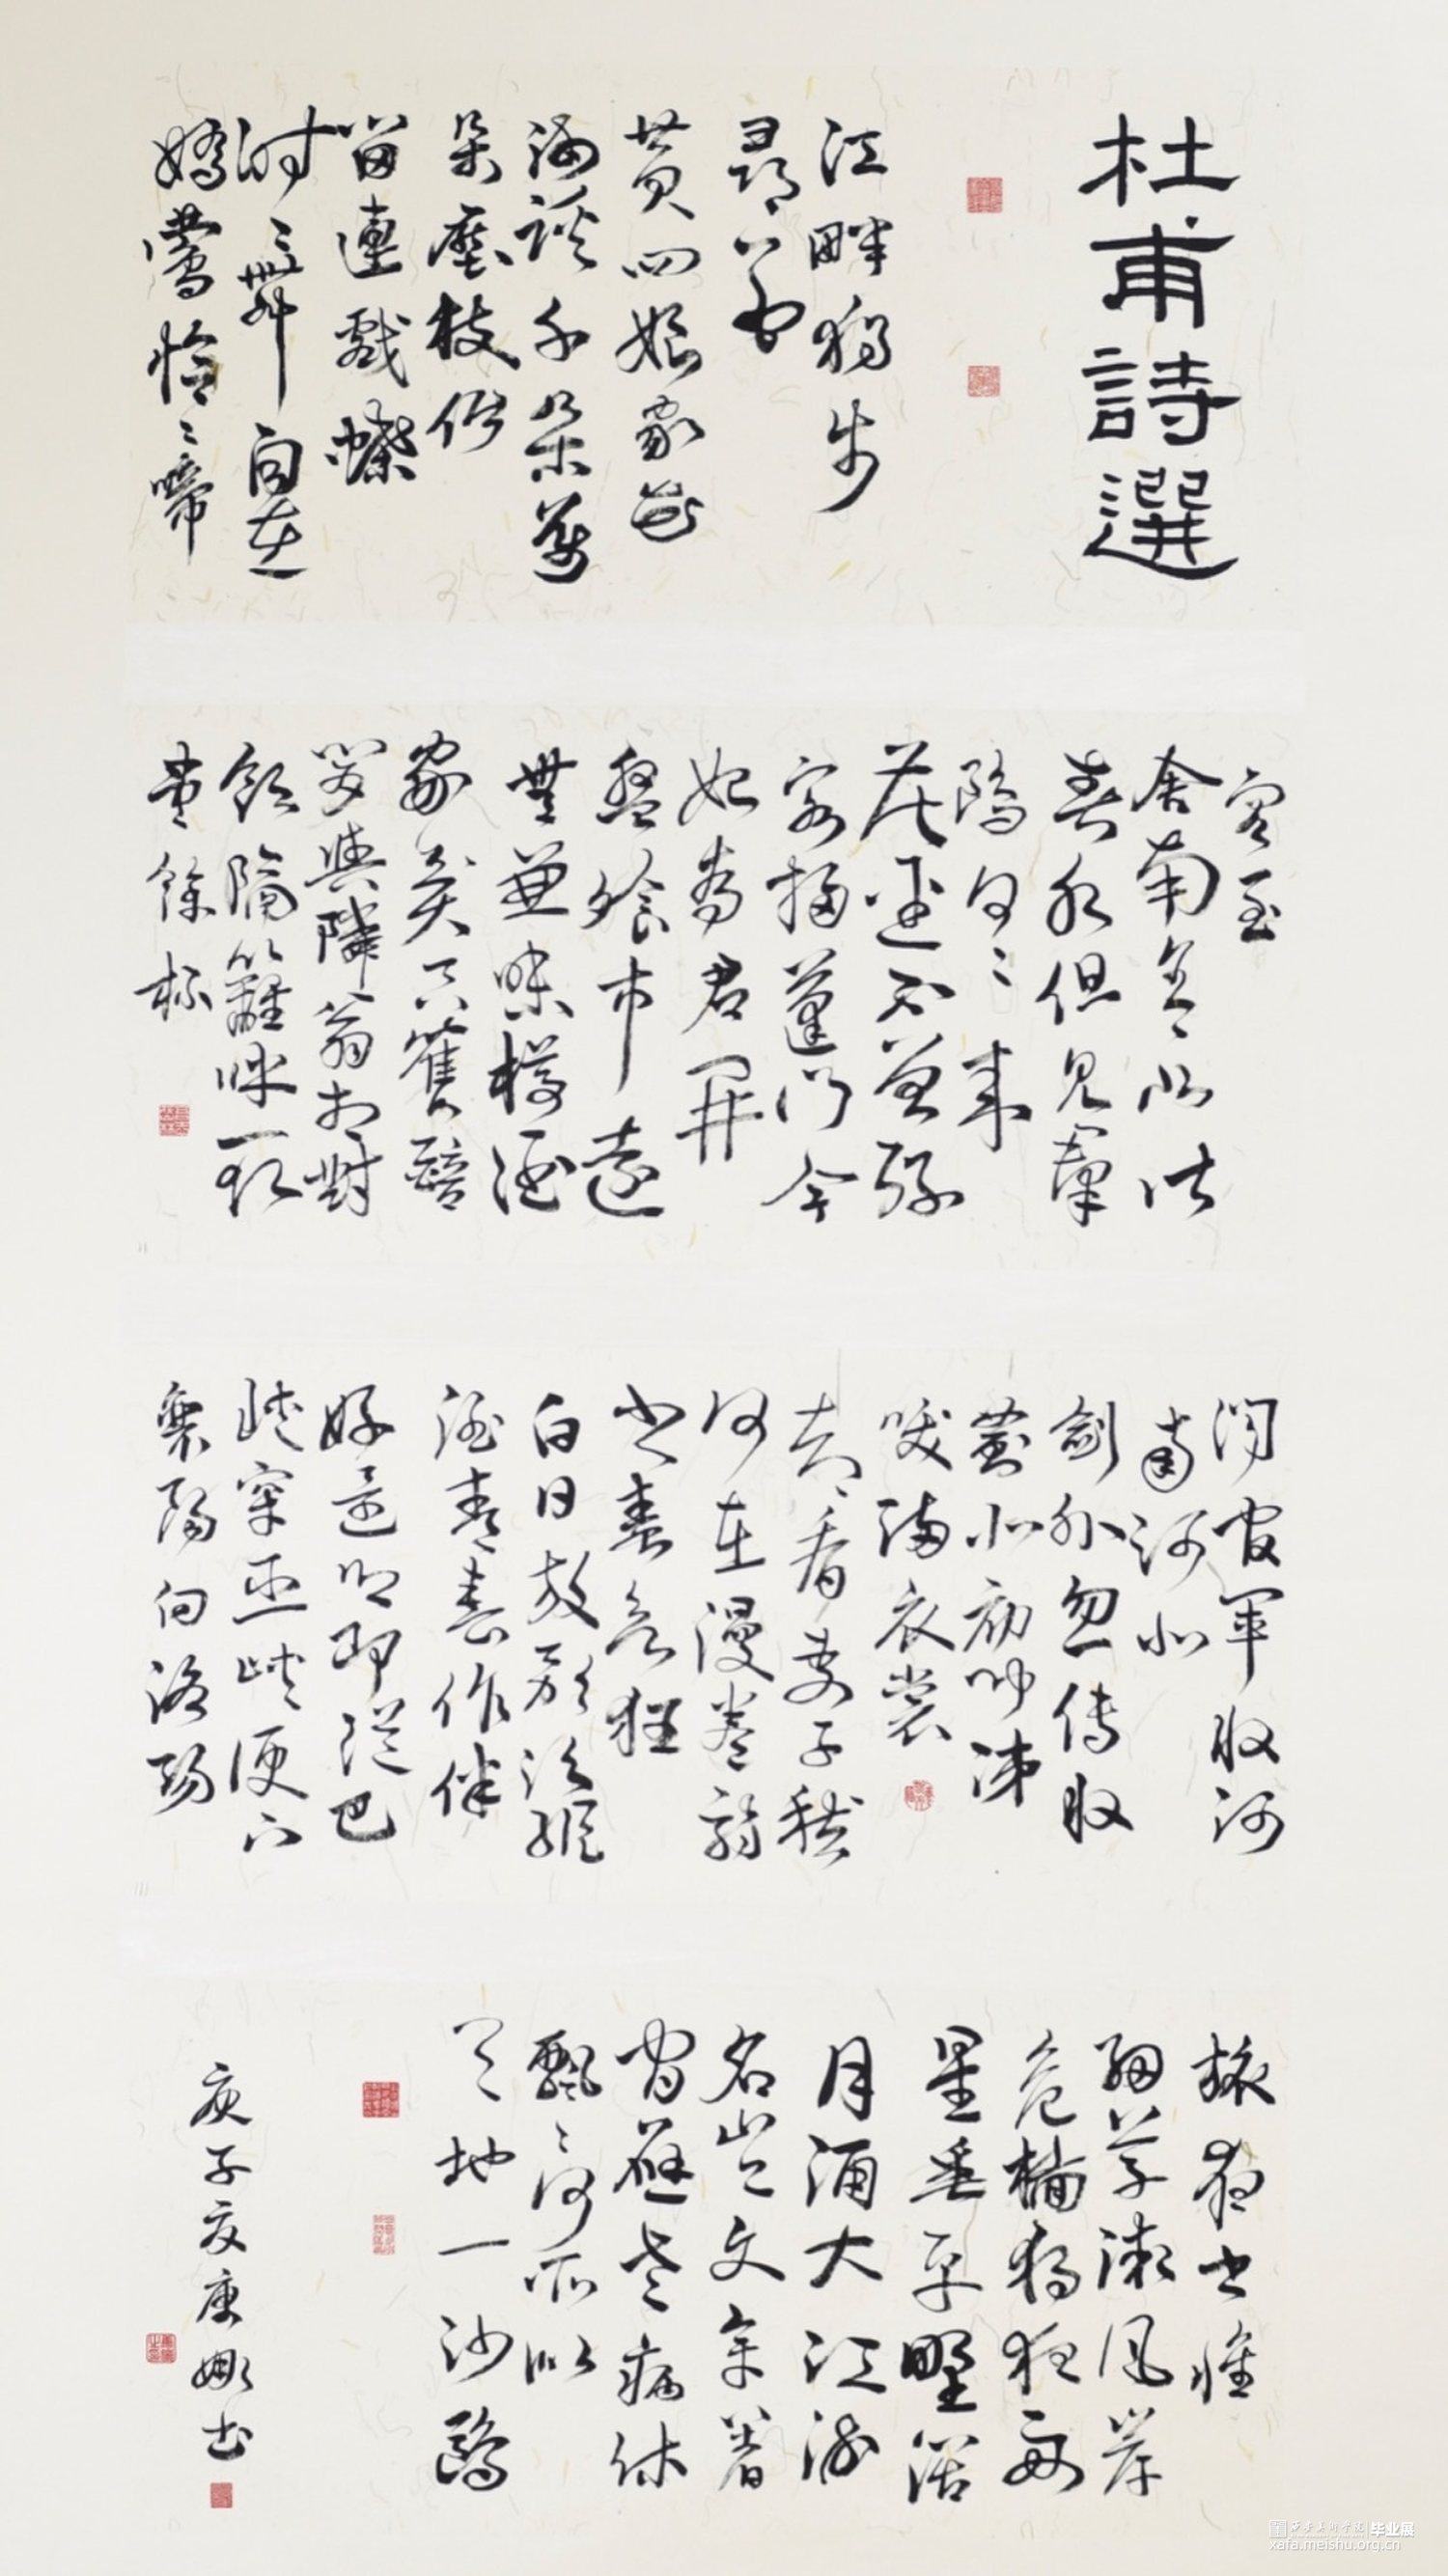 杜甫詩選
江畔獨步
尋花
黃四娘家花
滿蹊千朵萬
朵壓枝低
留連戲蝶
時〻舞自在
嬌鶯恰〻啼
客至
舍南舍北皆
春水但見羣
鷗日〻來
花徑不曾緣
客掃蓬門今
始為君開
盤飧市遠
無兼味樽酒
家貧只舊醅
肯與隣翁相對
飲隔籬呼取
盡餘杯
聞官軍收河
南河北
劍外忽傳收
薊北初聞涕
淚滿衣裳
卻看妻子愁
何在漫卷詩
書喜欲狂
白日放歌須縱
酒青春作伴
好還鄉即從巴
峽穿巫峽便下
襄陽向洛陽
旅夜書懷
細草微風岸
危檣獨夜舟
星垂平野闊
月涌大江流
名豈文章著
官應老病休
飄〻何所似
天地一沙鷗
庚子夏康娜書
西安美術學院 毕业展
xafa.meishu.org.cn